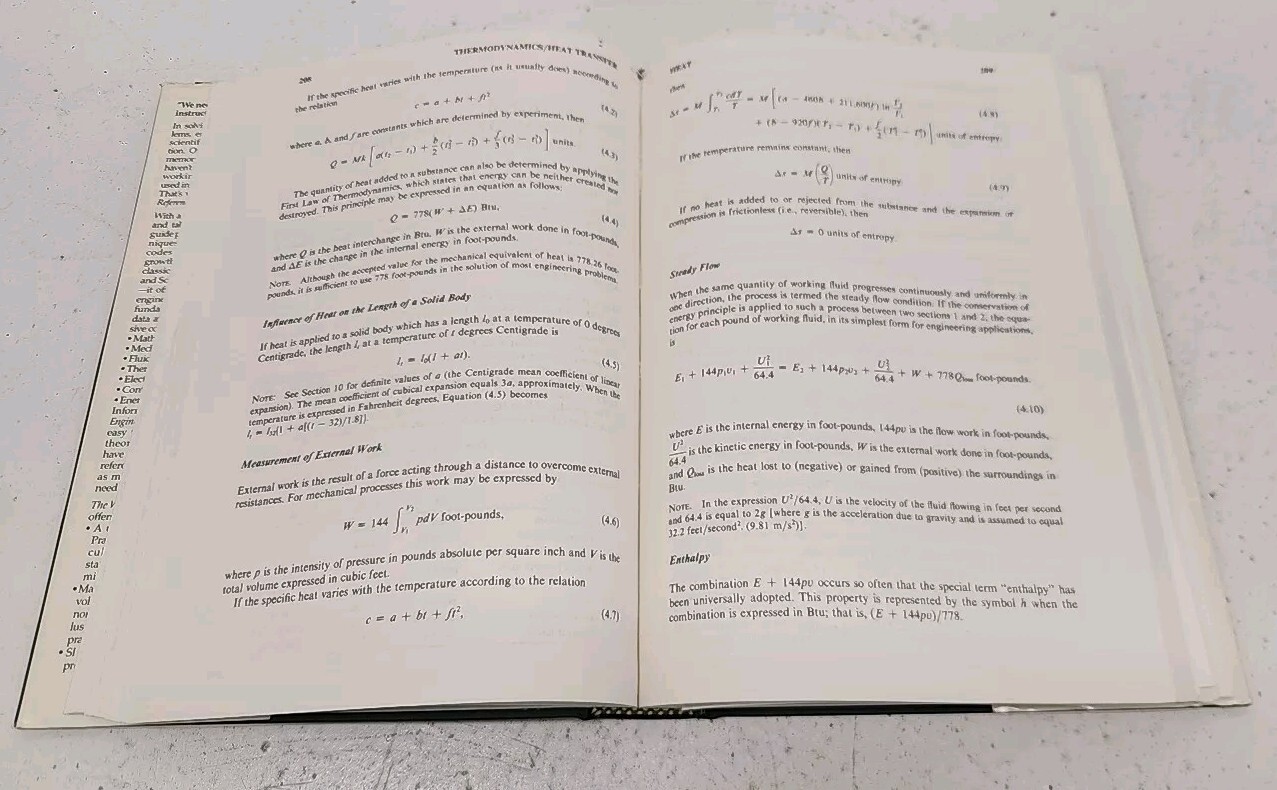 "We nee
instruc
In solvi
lems, e
scientif
tion. O
memor
haven't
workin
used in
That's
Referen
With a
and tal
guide
nique
codes
growth
classic
and Sc
—it of
engine
funda
data a
sive co
• Math
• Med
• Fluic
• Ther
• Elect
• Con
• Ener
Infor
Engin
easy
theor
have
refer
as m
need
The V
offer
• A
Pra
cul
sta
mi
• Ma
vol
nor
lus
pra
• SI
pr
208
THERMODYNAMICS/HEAT TRANSFER
If the specific heat varies with the temperature (as it usually does) according to
the relation
c = a + bt + ft²
(4.2)
where a, b, and f are constants which are determined by experiment, then
Q = Mk [a(t₂ − t₁) + b/2 (t₂² − t₁²) + f/3 (t₂³ − t₁³)] units.
(4.3)
The quantity of heat added to a substance can also be determined by applying the
First Law of Thermodynamics, which states that energy can be neither created nor
destroyed. This principle may be expressed in an equation as follows:
Q = 778(W + ΔE) Btu,
(4.4)
where Q is the heat interchange in Btu, W is the external work done in foot-pounds,
and ΔE is the change in the internal energy in foot-pounds.
NOTE. Although the accepted value for the mechanical equivalent of heat is 778.26 foot-
pounds, it is sufficient to use 778 foot-pounds in the solution of most engineering problems.
Influence of Heat on the Length of a Solid Body
If heat is applied to a solid body which has a length l₀ at a temperature of 0 degrees
Centigrade, the length lₜ at a temperature of t degrees Centigrade is
lₜ = l₀(1 + at).
(4.5)
NOTE: See Section 10 for definite values of a (the Centigrade mean coefficient of linear
expansion). The mean coefficient of cubical expansion equals 3a, approximately. When the
temperature is expressed in Fahrenheit degrees, Equation (4.5) becomes
lₜ = l₃₂[1 + a[(t − 32)/1.8]].
Measurement of External Work
External work is the result of a force acting through a distance to overcome external
resistances. For mechanical processes this work may be expressed by
W = 144 ∫_{V₁}^{V₂} pdV foot-pounds,
(4.6)
where p is the intensity of pressure in pounds absolute per square inch and V is the
total volume expressed in cubic feet.
If the specific heat varies with the temperature according to the relation
c = a + bt + ft²,
(4.7)
HEAT
209
then
Δs = M ∫_{T₁}^{T₂} cdT/T = M [(a − 460b + 211,600f) ln T₂/T₁
(4.8)
+ (b − 920f)(T₂ − T₁) + f/2 (T₂² − T₁²)] units of entropy.
If the temperature remains constant, then
Δs = M(Q/T) units of entropy.
(4.9)
If no heat is added to or rejected from the substance and the expansion or
compression is frictionless (i.e., reversible), then
Δs = 0 units of entropy.
Steady Flow
When the same quantity of working fluid progresses continuously and uniformly in
one direction, the process is termed the steady flow condition. If the conservation of
energy principle is applied to such a process between two sections 1 and 2, the equa-
tion for each pound of working fluid, in its simplest form for engineering applications,
is
E₁ + 144p₁υ₁ + U₁²/64.4 = E₂ + 144p₂υ₂ + U₂²/64.4 + W + 778Q_loss foot-pounds.
(4.10)
where E is the internal energy in foot-pounds, 144pυ is the flow work in foot-pounds,
U²/64.4 is the kinetic energy in foot-pounds, W is the external work done in foot-pounds,
and Q_loss is the heat lost to (negative) or gained from (positive) the surroundings in
Btu.
NOTE. In the expression U²/64.4, U is the velocity of the fluid flowing in feet per second
and 64.4 is equal to 2g [where g is the acceleration due to gravity and is assumed to equal
32.2 feet/second², (9.81 m/s²)].
Enthalpy
The combination E + 144pυ occurs so often that the special term "enthalpy" has
been universally adopted. This property is represented by the symbol h when the
combination is expressed in Btu; that is, (E + 144pυ)/778.